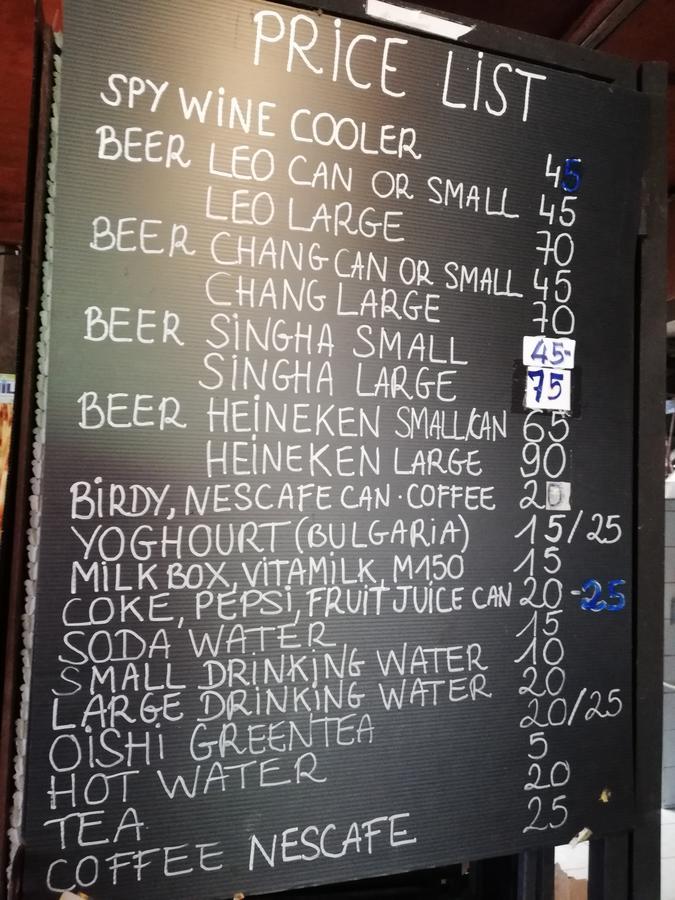 PRiCE LiST
SPY WiNE COOLER 45
BEER LEO CAN OR SMALL 45
LEO LARGE 70
BEER CHANG CAN OR SMALL 45
CHANG LARGE 70
BEER SiNGHA SMALL 45-
SiNGHA LARGE 75
BEER HEiNEKEN SMALL/CAN 65
HEiNEKEN LARGE 90
BiRDY, NESCAFE CAN·COFFEE 20
YOGHOURT (BULGARiA) 15/25
MiLK BOX, ViTAMiLK, M150 15
COKE, PEPSi, FRUiT JUiCE CAN 20-25
SODA WATER 15
SMALL DRiNKiNG WATER 10
LARGE DRiNKiNG WATER 20
OiSHi GREENTEA 20/25
HOT WATER 5
TEA 20
COFFEE NESCAFE 25